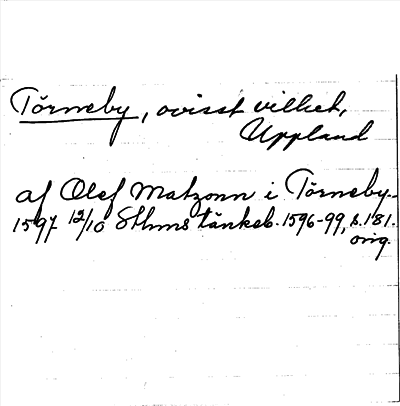 Törneby, ovisst vilket,
Uppland
af Olef Matzonn i Törneby.
1597 12/10 Sthms tänkeb. 1596-99, s. 181.
orig.